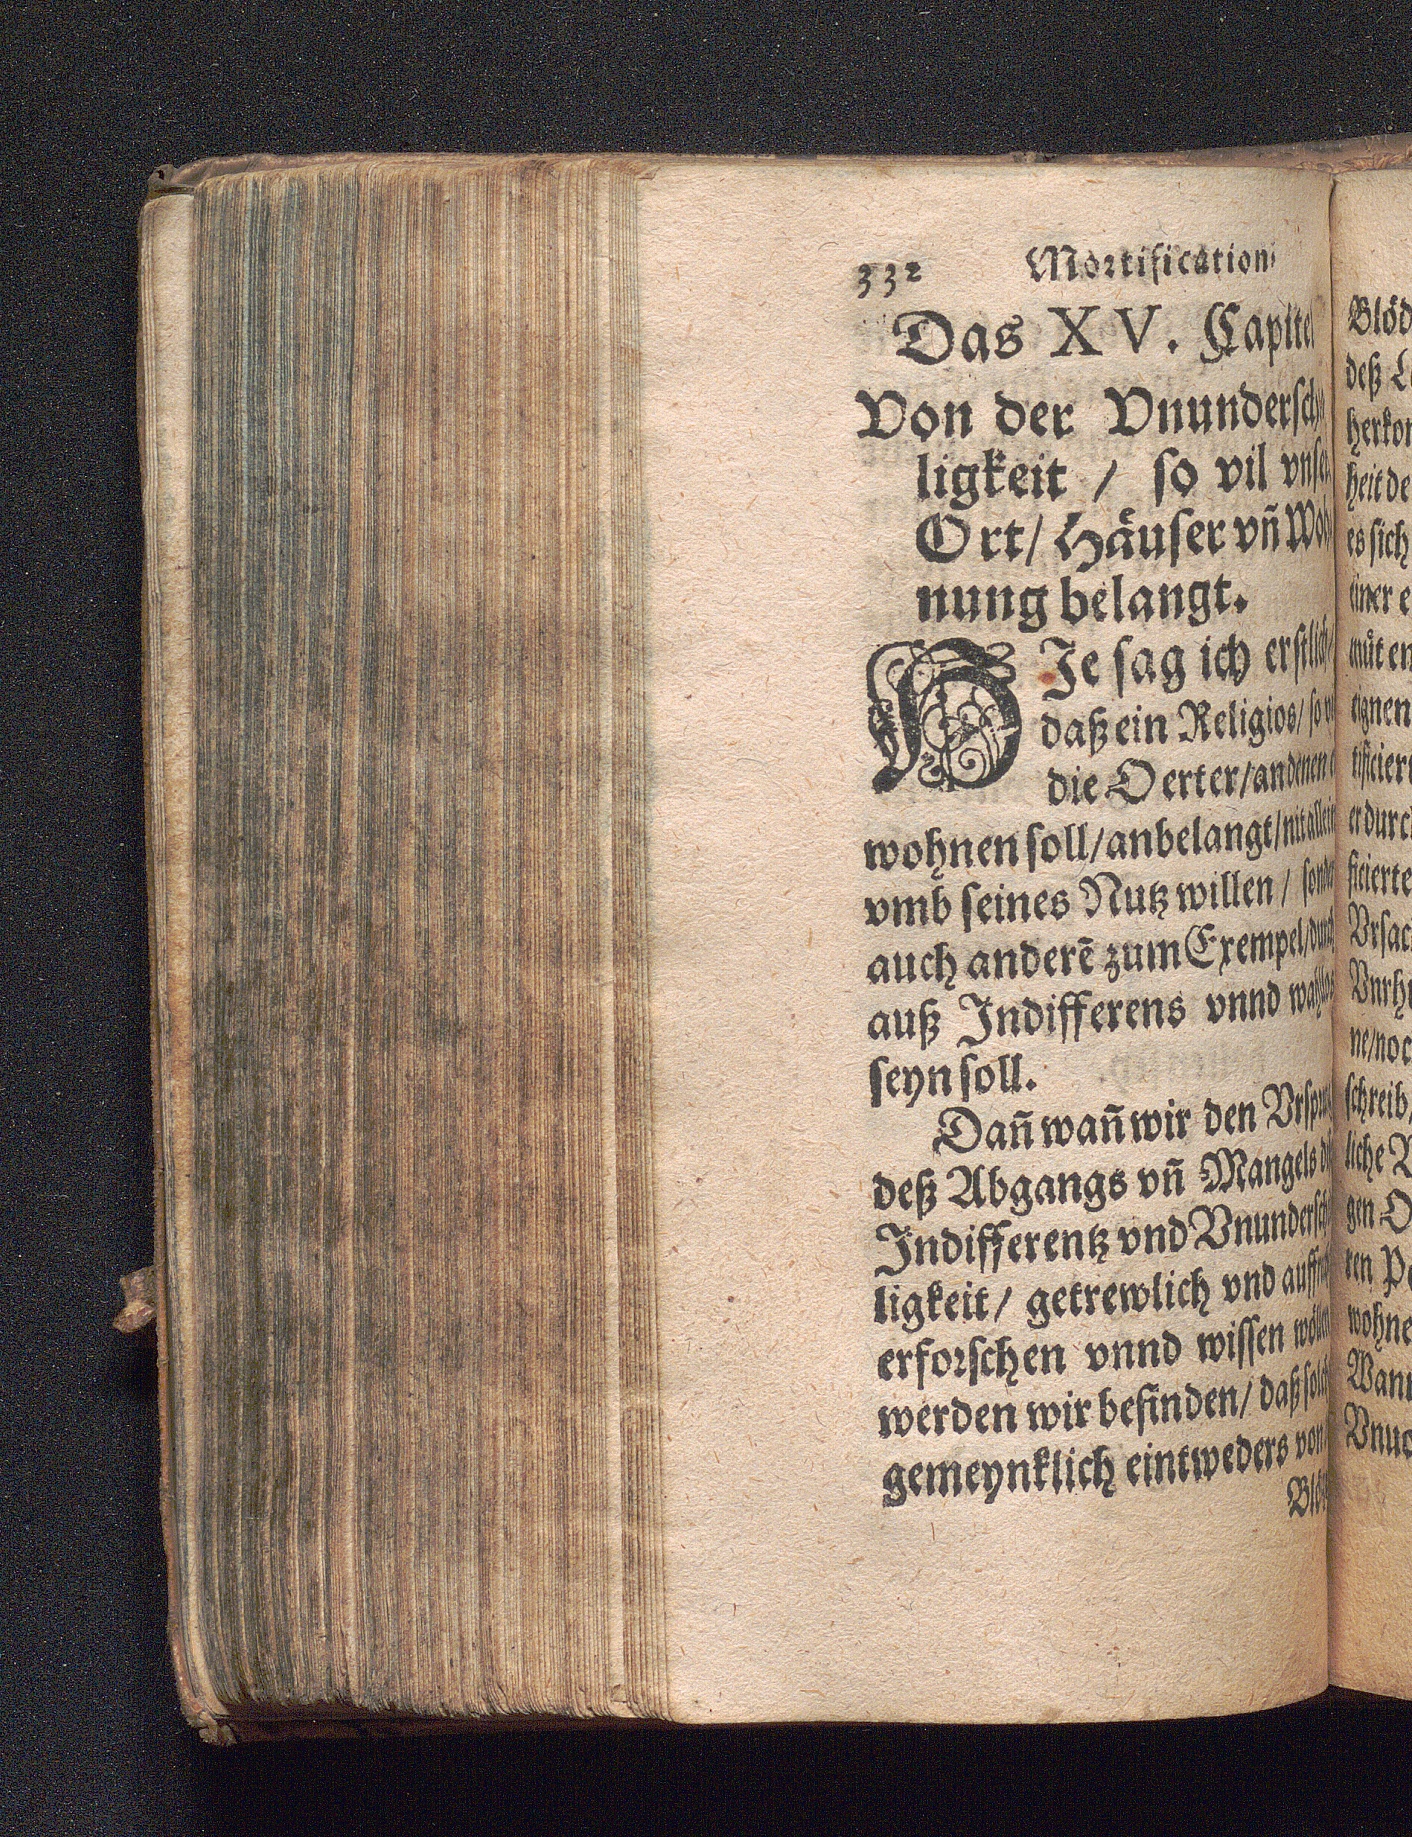 332 Mortification
Das XV. Capitel
Von der Vnundersch
ligkeit / so vil vnser
Ort/ Häuser vñ Woh
nung belangt.
HJe sag ich erstlich/
daß ein Religios/ so vi
die Oerter/an denen
wohnen soll/anbelangt/nit allein
vmb seines Nutz willen / sonder
auch anderẽ zum Exempel/durch
auß Indifferens vnnd wahllos
seyn soll.
Dañ wañ wir den Vrsprung
deß Abgangs vñ Mangels
Indifferentz vnd Vnunderschi
ligkeit/ getrewlich vnd
erforschen vnnd wissen wöllen
werden wir befinden/ daß solch
gemeynklich eintweders von
Blö
Blöd
deß
herkom
heit de
es sich
einer e
můt en
eignen
tificiert
er durch
ficierte
Vrsach
Vnrhu
ne/noch
schreib/
liche
gen O
ren
wohne
Wann
Vnud